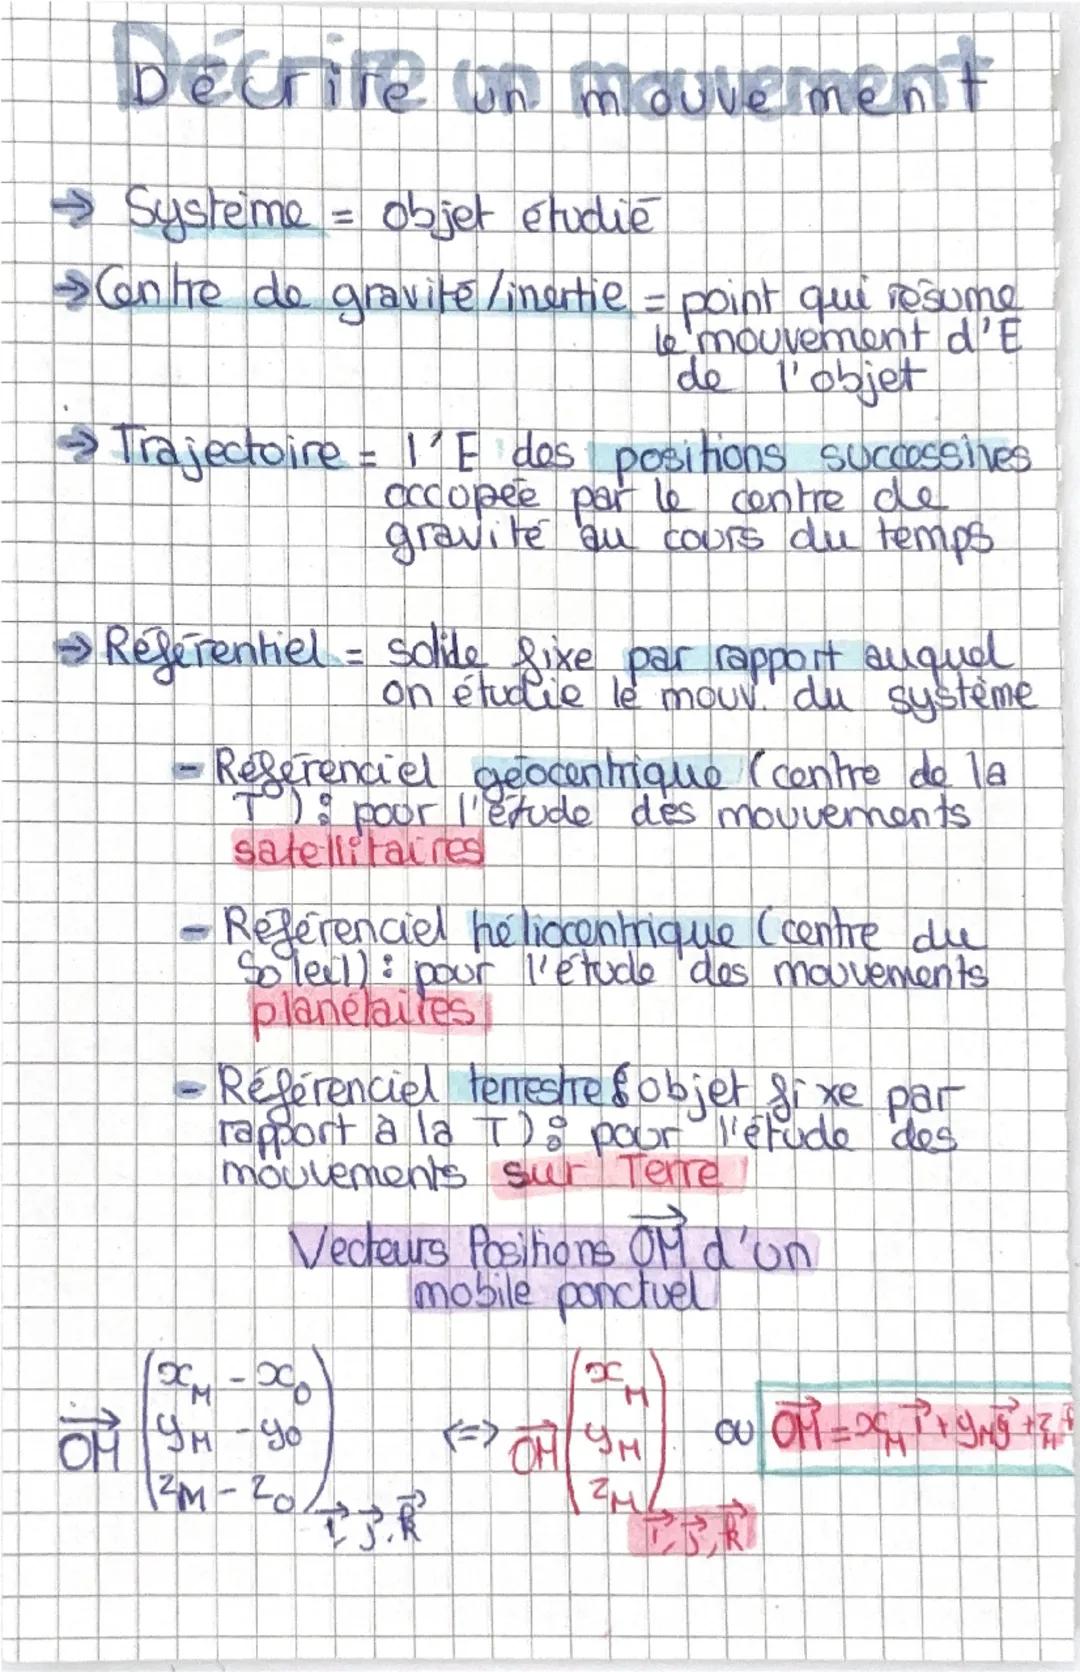 Décrire un mouvement
→ Système = objet étudié
→ Centre de gravité/inertie = point qui résume
le mouvement d'E
de l'objet
→ Trajectoire = l'E des positions successives
occopée par le centre de
gravité au cours du temps
→ Référentiel = solide fixe par rapport auquel
on étudie le mouv. du système
- Référenciel géocentrique (centre de la
T) : pour l'étude des mouvements
satellitaires
- Référenciel héliocentrique (centre du
Soleil) : pour l'étude des mouvements
planétaires
- Référenciel terrestre (objet fixe par
rapport à la T) : pour l'étude des
mouvements sur Terre
Vecteurs Positions OM⃗ d'un
mobile ponctuel
OM⃗ (x_M - x_O
y_M - y_O
z_M - z_O) i⃗, j⃗, k⃗
<=> OM⃗ (x_M
y_M
z_M) i⃗, j⃗, k⃗
ou OM⃗ = x_M i⃗ + y_M j⃗ + z_M